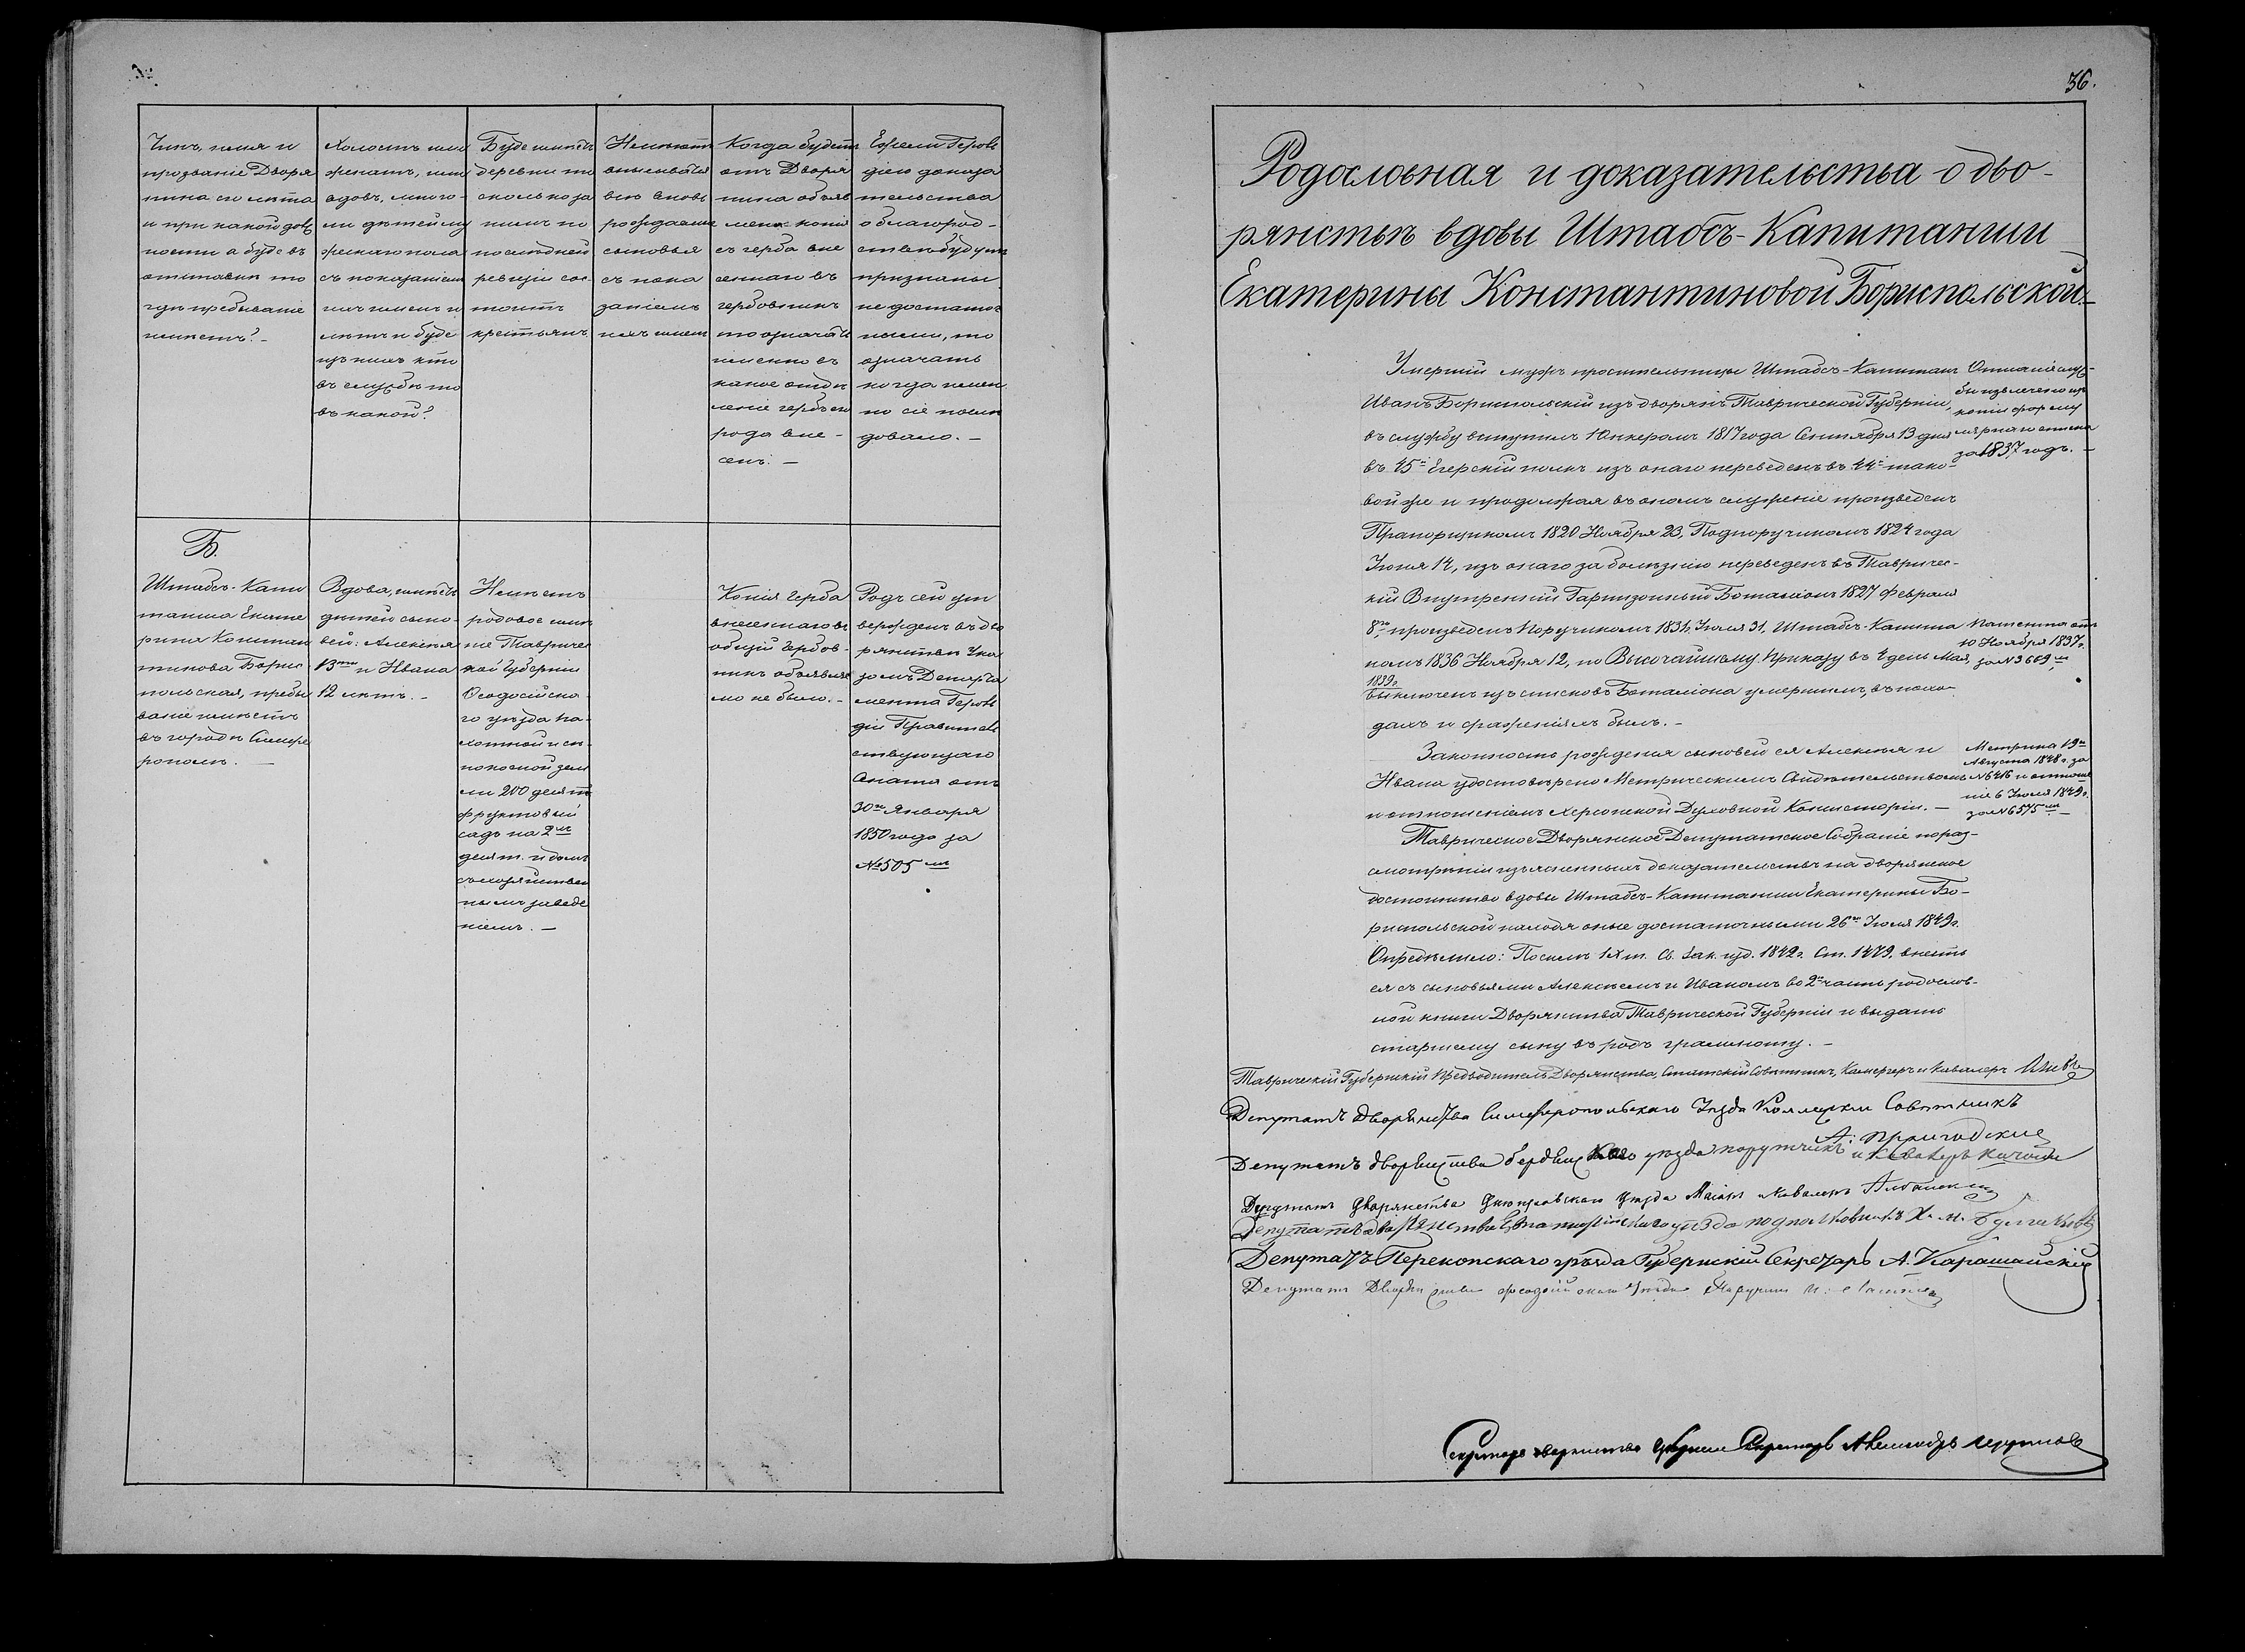 Чинъ, имя и
прозваніе Дворя
нина его лѣта
и при какой долж
ности а буде въ
отставкѣ то
гдѣ пребываніе
имѣетъ? -
Холостъ или
женатъ, или
вдовъ, много-
ли дѣтей му
жескаго пола
съ показаніемъ
ихъ именъ и
лѣтъ и буде
изъ нихъ кто
въ службѣ то
въ какой?
Буде имѣетъ
деревни то
сколько за
нимъ по
послѣдней
ревизіи сос-
тоитъ
крестьянъ.
Неимѣютъ
вновь
рождаемые
сыновья
съ пока
заніемъ
ихъ именъ
Когда будетъ
отъ Дворя
нина объяв
лена копія
съ герба вне
сеннаго въ
гербовникъ
то означать
именно въ
какое отдѣ
леніе гербъ его
рода вне-
сенъ. -
Ежели Героль
діею доказа
тельства
о благород-
ствѣ будутъ
признаны
недостаточ
ными, то
означать
когда имен
но сіе послѣ
довало. -
Б.
Штабсъ-Капи
танша Екате
рина Констан
тинова Борис
польская, пребы
ваніе имѣетъ
въ городѣ Симфе
рополѣ. -
Вдова, имѣетъ
дѣтей сыно-
вей: Алексѣя
13ти и Ивана
12 лѣтъ. -
Имѣетъ
родовое имѣ
ніе Тавричес
кой Губерніи
Ѳеодосійска-
го уѣзда па-
хотной и сѣ-
нокосной зем
ли 200 десят.
фруктовый
садъ на 2хъ
десят. и домъ
съ хозяйствен
нымъ заведе
ніемъ. -
Копія герба
внесеннаго въ
общій гербов-
никъ объявле
но не было. -
Родъ сей ут
вержденъ въ дво
рянствѣ Ука
зомъ Департа
мента Героль
діи Правитель
ствующаго
Сената отъ
30го Января
1850 года за
№505мъ
36.
Родословная и доказательства о дво-
рянствѣ вдовы Штабсъ-Капитанши
Екатерины Константиновой Бориспольской. -
Умершій мужъ просительницы Штабсъ-Капитанъ
Иванъ Бориспольскій изъ дворянъ Таврической Губерніи,
въ службу вступилъ Юнкеромъ 1817 года Сентября 13 дня
въ 45й Егерскій полкъ изъ онаго переведенъ въ 44й тако-
вой же и продолжая въ ономъ служеніе произведенъ
Прапорщикомъ 1820 Ноября 23, Подпоручикомъ 1824 года
Іюня 14, изъ онаго за болѣзнію переведенъ въ Тавричес-
кій Внутренній Гарнизонный Баталіонъ 1827 Февраля
8го, произведенъ Поручикомъ 1831, Іюля 31, Штабсъ-Капита
номъ 1836 Ноября 12, по Высочайшему Приказу въ 4 день Мая,
1839г.
Выключенъ изъ списковъ Баталіона умершимъ, въ похо-
дахъ и сраженіяхъ былъ. -
Отписаніе служ-
бы извлечено изъ
копіи форму
лярнаго списка
за 1837 годъ. -
Патента отъ
10 Ноября 1837г.
за №3669,мъ
Законность рожденія сыновей ея Алексѣя и
Ивана удостовѣрено Метрическимъ Свидѣтельствомъ
и отношеніемъ Херсонской Духовной Консисторіи. -
Метрика 19го
Августа 1848г. за
№6416 и отноше
ніе 6 Іюля 1849г.
за №6575мъ -
Таврическое Дворянское Депутатское Собраніе по раз-
смотрѣніи изъясненныхъ доказательствъ на дворянское
достоинство вдовы Штабсъ-Капитанши Екатерины Бо-
риспольской находя оные достаточными 26го Іюля 1849г.
Опредѣлило: По силѣ IX т. Св. Зак. изд. 1842г. Ст. 1479, внесть
ея съ сыновьями Алексѣемъ и Иваномъ во 2ю часть родослов-
ной книги Дворянства Таврической Губерніи и выдать
старшему сыну въ родъ грамоту. -
Таврическій Губернскій Предводитель Дворянства, Статскій Совѣтникъ, Камергеръ и Кавалеръ
Депутатъ дворянства Симферопольскаго Уѣзда Коллежскій Совѣтникъ
Депутатъ дворянства уѣзда поручикъ и Кавалеръ
Депутатъ дворянства Днепровскаго Уѣзда Маіоръ и Кавалеръ
Депутатъ дворянства Евпаторійскаго уѣзда подполковникъ
Депутатъ Перекопскаго уѣзда Губернскій Секретарь А. Карашайскій
Депутатъ Дворянства Ѳеодосійскаго Уѣзда Поручикъ
Секретарь дворянства Губернскій Секретарь Александръ